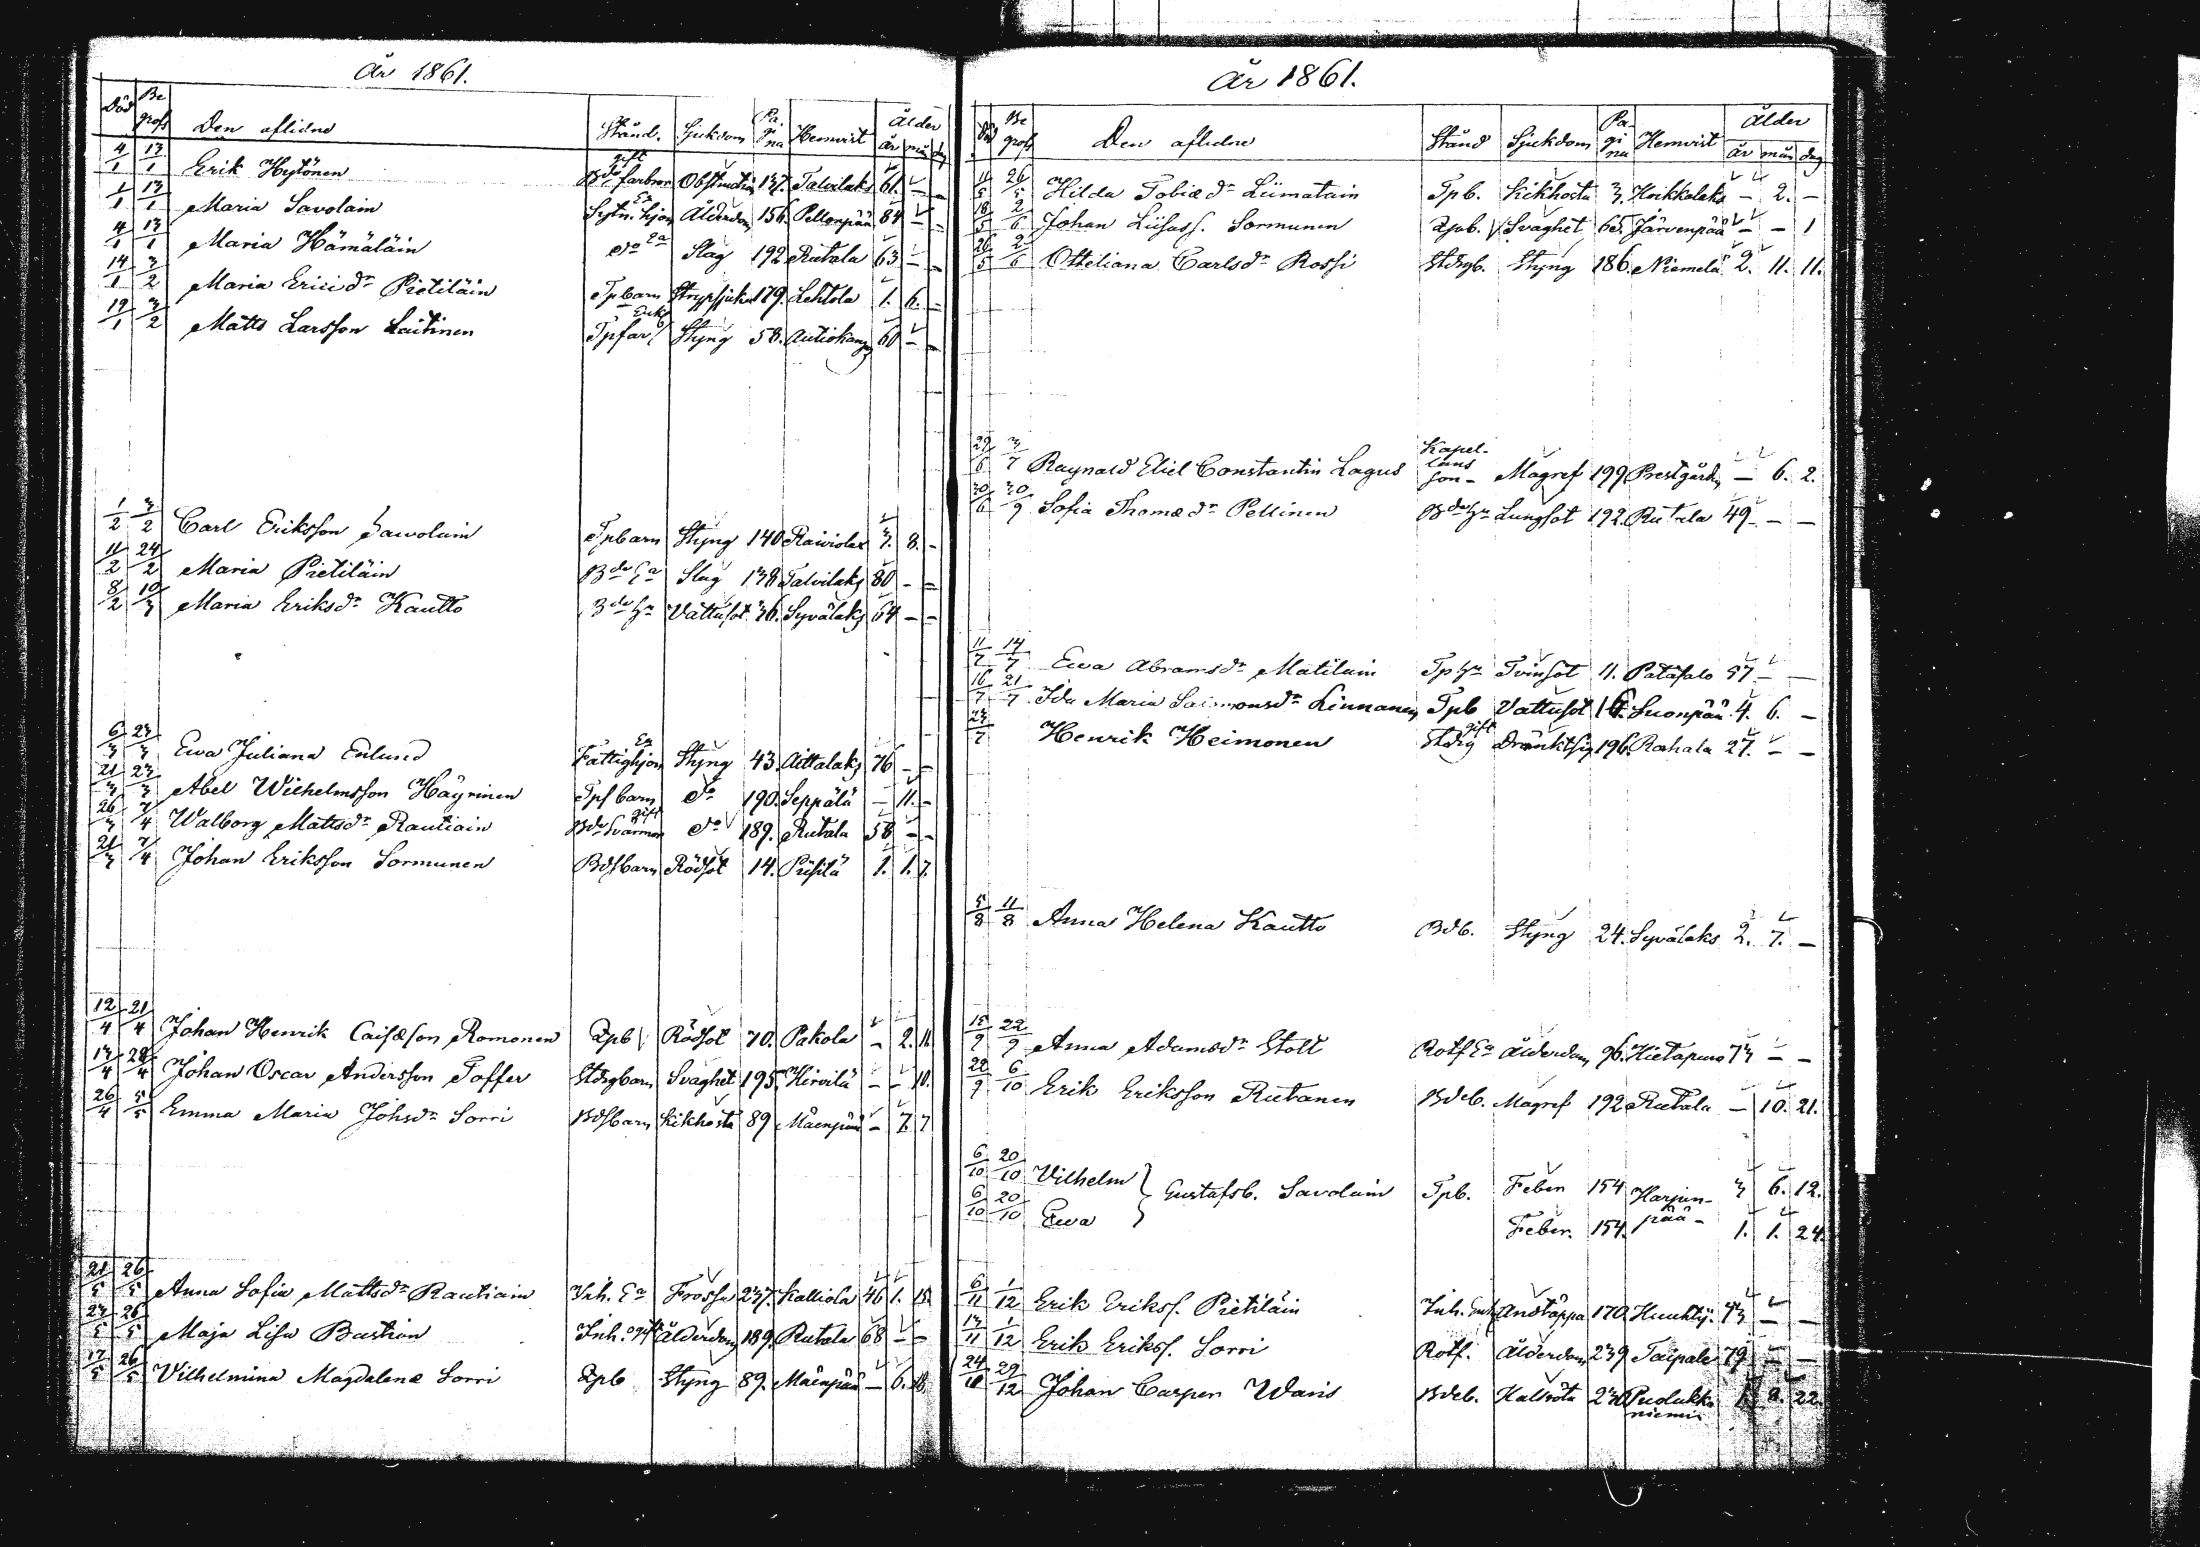 År 1861.
Död Be grafn Den aflidne Stånd. Sjukdom Pa gi na Hemvist Ålder år mån dag
4/1 13/1 Erik Hytönen gift Bde farbror Obstruction 137. Talvilaks 61. – –
1/1 13/1 Maria Savolain Sytn. hjon Ea Ålderdom 156. Pellonpää 84 – –
4/1 13/1 Maria Hämäläin do Ea Slag 192 Rutala 63 – –
14/1 3/2 Maria Erici dr Pietiläin Tpbarn Strypsjuka 179. Lehtola 1. 6. –
19/1 3/2 Matts Larsson Laitinen Tpfar Enkl Styng 58. Autiokang 60 – –
1/2 3/2 Carl Eriksson Sawolain Tpbarn Styng 140 Raiviolax 3. 8. –
11/2 24/2 Maria Pietiläin Bde Ea Slag 138 Talvilaks 80 – –
8/2 10/3 Maria Eriksdr Kautto Bde hu Vattusot 36. Syvälaks 64 – –
6/3 23/3 Ewa Juliana Enlund Fattighjon Ea Styng 43. Aittalaks 76 – –
21/3 23/3 Abel Wilhelmsson Häyrinen Tpbarn do 190. Seppälä – 11. –
26/3 7/4 Walborg Mattsdr Rautiain Bde Svärmor gift do 189. Rutala 58 – –
21/3 7/4 Johan Eriksson Sormunen Bdsbarn Rödsot 14. Prisilä 1. 1. 7.
12/4 21/4 Johan Henrik Caisæson Romonen Qpb Rödsot 70. Pakola – 2. 11.
13/4 28/4 Johan Oscar Andersson Toffer Stdrgbarn Svaghet 195. Hirvilä – – 10.
26/4 5/5 Emma Maria Johsdr Sorri Bdsbarn Kikhosta 89 Mäenpää – 7. 7
21/5 26/5 Anna Sofia Mattsdr Rautiain Inh. Ea Frossa 237. Kalliola 46 1. 15.
23/5 26/5 Maja Lisa Bastian Inh. ogift Ålderdom 189. Rutala 68 – –
17/5 26/5 Vilhelmina Magdalena Sorri Qpb Styng 89. Mäenpää – 6. 18.
År 1861.
Död Be grafn Den aflidne Stånd Sjukdom Pa gi na Hemvist Ålder år mån dag
11/5 26/5 Hilda Tobiæ dr Liimatain Tpb. Kikhosta 3. Hoikkalaks – 2. –
18/5 2/6 Johan Liisas s. Sormunen Qpb. Svaghet 65. Järvenpää – – 1
26/5 2/6 Otteliana Carlsdr Rossi Stdrgb. Styng 186. Niemelä 2. 11. 11.
29/6 3/7 Raynald Eliel Constantin Lagus Kapel- lans son – Magref 199 Prestgård – 6. 2.
30/6 30/9 Sofia Thomæ dr Pellinen Bde hu Lungsot 192. Rutala 49 – –
11/7 14/7 Ewa Abramsdr Matilain Tp hu Tvinsot 11. Patasalo 57 – –
16/7 21/7 Ida Maria Saimonsdr Linnanen Tpb Vattusot 16. Suonpää 4. 6. –
23/7 Henrik Heimonen Stdrg gift Dränkt sig 196. Rahala 27. – –
5/8 11/8 Anna Helena Kautto Bdb. Styng 24. Syvälaks 2. 7. –
15/9 22/9 Anna Adamsdr Stolt Rotf Ea Ålderdom 96. Hietapuro 73 – –
22/9 6/10 Erik Eriksson Rutanen Bdeb. Magref 192 Rutala – 10. 21.
6/10 20/10 Vilhelm } Gustafsb. Savolain Tpb. Feber 154 Harjun- 3 6. 12.
6/10 20/10 Ewa Feber. 154. pää – 1. 1. 24.
6/11 1/12 Erik Erikss. Pietiläin Inh. Enkl Andtäppa 170. Huuhtij. 43 – –
13/11 1/12 Erik Erikss. Sorri Rotf. Ålderdom 239 Taipale 79 – –
24/11 29/12 Johan Casper Waris Bdeb. Hallsöta 230 Puolukka niemi 1. 8. 22.